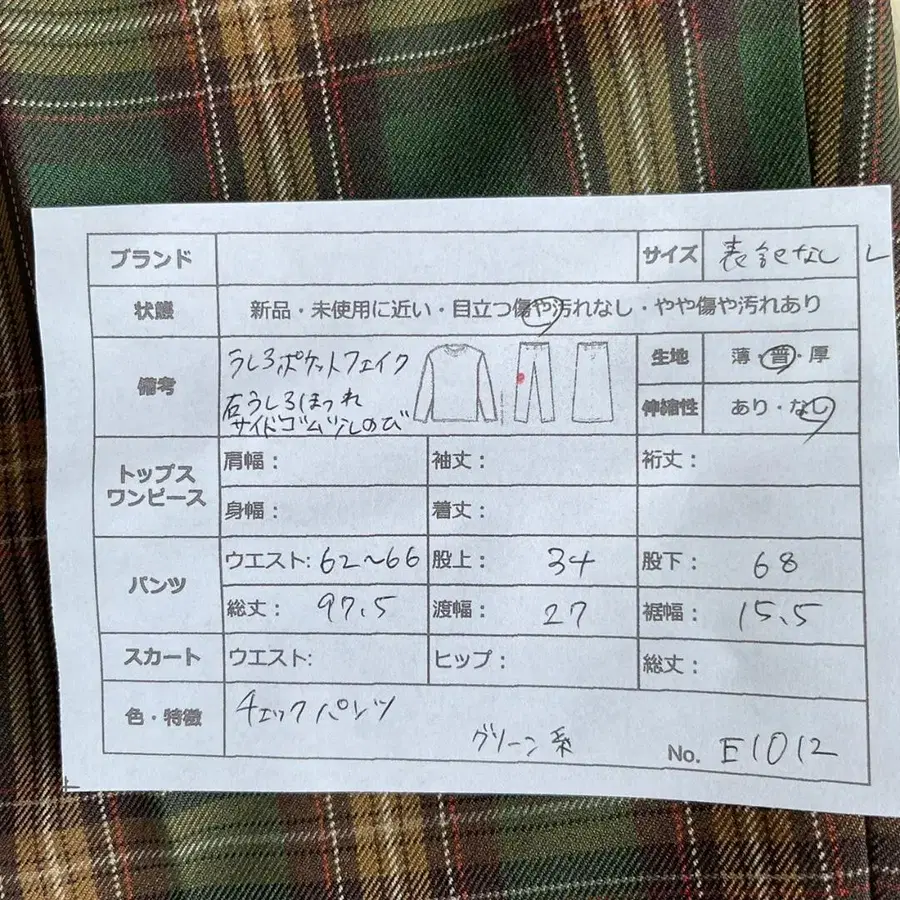 ブランド
サイズ 表記なし L
状態 新品・未使用に近い・目立つ傷や汚れなし・やや傷や汚れあり
備考 うしろポケットフェイク
右うしろほつれ
サイドゴム少しのび
生地 薄・普・厚
伸縮性 あり・なし
トップス
ワンピース
肩幅： 袖丈： 裄丈：
身幅： 着丈：
パンツ
ウエスト: 62〜66 股上： 34 股下： 68
総丈： 97.5 渡幅： 27 裾幅： 15.5
スカート ウエスト: ヒップ： 総丈：
色・特徴 チェックパンツ
グリーン系
No. E1012